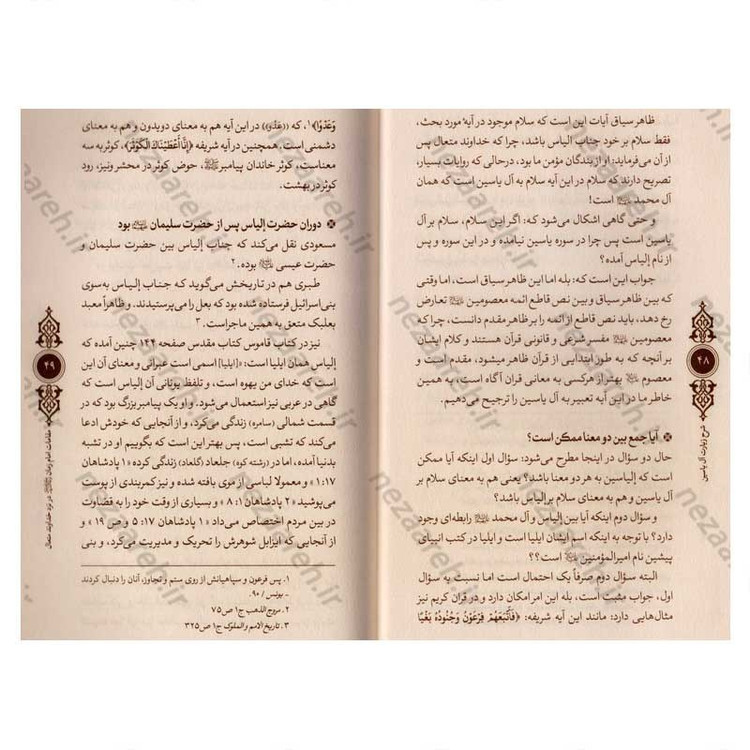 ظاهر سیاق آیات این است که سلام موجود در آیهٔ مورد بحث،
فقط سلام بر خود جناب الیاس باشد، چرا که خداوند متعال پس
از آن می‌فرماید: او از بندگان مؤمن ما بود، درحالی که روایات بسیار،
تصریح دارند که سلام در این آیه سلام به آل یاسین است که همان
آل محمد ﷺ است!
و حتی گاهی اشکال می‌شود که: اگر این سلام، سلام بر آل
یاسین است پس چرا در سوره یاسین نیامده و در این سوره و پس
از نام إلیاس آمده؟
جواب این است که: بله اما این ظاهر سیاق است، اما وقتی
که بین ظاهر سیاق و بین نص قاطع ائمه معصومین تعارض
رخ دهد، باید نص قاطع از ائمه را بر ظاهر مقدم دانست، چرا که
معصومین مفسر شرعی و قانونی قرآن هستند و کلام ایشان
بر آنچه که به طور ابتدایی از قرآن ظاهر میشود، مقدم است و
معصوم بهتر از هرکسی به معانی قران آگاه است، به همین
خاطر ما در این آیه تعبیر به آل یاسین را ترجیح می‌دهیم.
آیا جمع بین دو معنا ممکن است؟
حال دو سؤال در اینجا مطرح می‌شود: سؤال اول اینکه آیا ممکن
است که إلیاسین به هر دو معنا باشد؟ یعنی هم به معنای سلام بر
آل یاسین و هم به معنای سلام بر الیاس باشد؟
و سؤال دوم اینکه آیا بین إلیاس و آل محمد رابطه‌ای وجود
دارد؟ با توجه به اینکه اسم ایشان ایلیا است و ایلیا در کتب انبیای
پیشین نام امیرالمؤمنین است؟؟
البته سؤال دوم صرفاً یک احتمال است اما نسبت به سؤال
اول، جواب مثبت است، بله این امر امکان دارد و در قران کریم نیز
مثال‌هایی دارد: مانند این آیه شریفه: ﴿فَأَتْبَعَهُمْ فِرْعَوْنُ وَجُنُودُهُ بَغْيًا
۴۸
شرح زیارت آل یاسین
وَعَدْوًا﴾۱، که ((عَدْو)) در این آیه هم به معنای دویدون و هم به معنای
دشمنی است. همچنین در آیه شریفه ﴿إِنَّا أَعْطَيْنَاكَ الْكَوْثَرَ﴾، کوثر به سه
معناست، کوثر خاندان پیامبر ﷺ، حوض کوثر در محشر ونیز، رود
کوثر در بهشت.
دوران حضرت إلیاس پس از حضرت سلیمان بود
مسعودی نقل می‌کند که جناب إلیاس بین حضرت سلیمان و
حضرت عیسی بوده. ۲
طبری هم در تاریخش می‌گوید که جناب إلیاس به‌سوی
بنی‌اسرائیل فرستاده شده بود که بعل را می‌پرستیدند. و ظاهراً معبد
بعلبک متعق به همین ماجراست. ۳
نیز در کتاب قاموس کتاب مقدس صفحه ۱۴۴ چنین آمده که
إلیاس همان ایلیا است: «[ایلیا] اسمی است عبرانی و معنای آن این
است که خدای من یهوه است، و تلفظ یونانی آن إلیاس است که
گاهی در عربی نیز استعمال می‌شود. و او یک پیامبر بزرگ بود که در
قسمت شمالی (سامره) زندگی می‌کرد، و از آنجایی که خودش ادعا
می‌کند که تشبی است، پس بهتر این است که بگوییم او در تشبه
بدنیا آمده، اما در (رشته کوه) جلعاد (گلعاد) زندگی کرده «۱ پادشاهان
۱:۱۷» و معمولا لباسی از موی بافته شده و نیز کمربندی از پوست
می‌پوشید «۲ پادشاهان ۸:۱» و بسیاری از وقت خود را به قضاوت
در بین مردم اختصاص می‌داد «۱ پادشاهان ۵:۱۷ و ص ۱۹» و
از آنجایی که ایزابل شوهرش را تحریک و مدیریت می‌کرد، و بنی
۱. پس فرعون و سپاهیانش از روی ستم و تجاوز، آنان را دنبال کردند
ـ یونس / ۹۰.
۲. مروج الذهب ج۱ ص۷۵
۳. تاریخ الامم والملوک ج۱ ص۳۲۵
۴۹
مقامات امام زمان در نزد خداوند متعال
nezaareh.ir